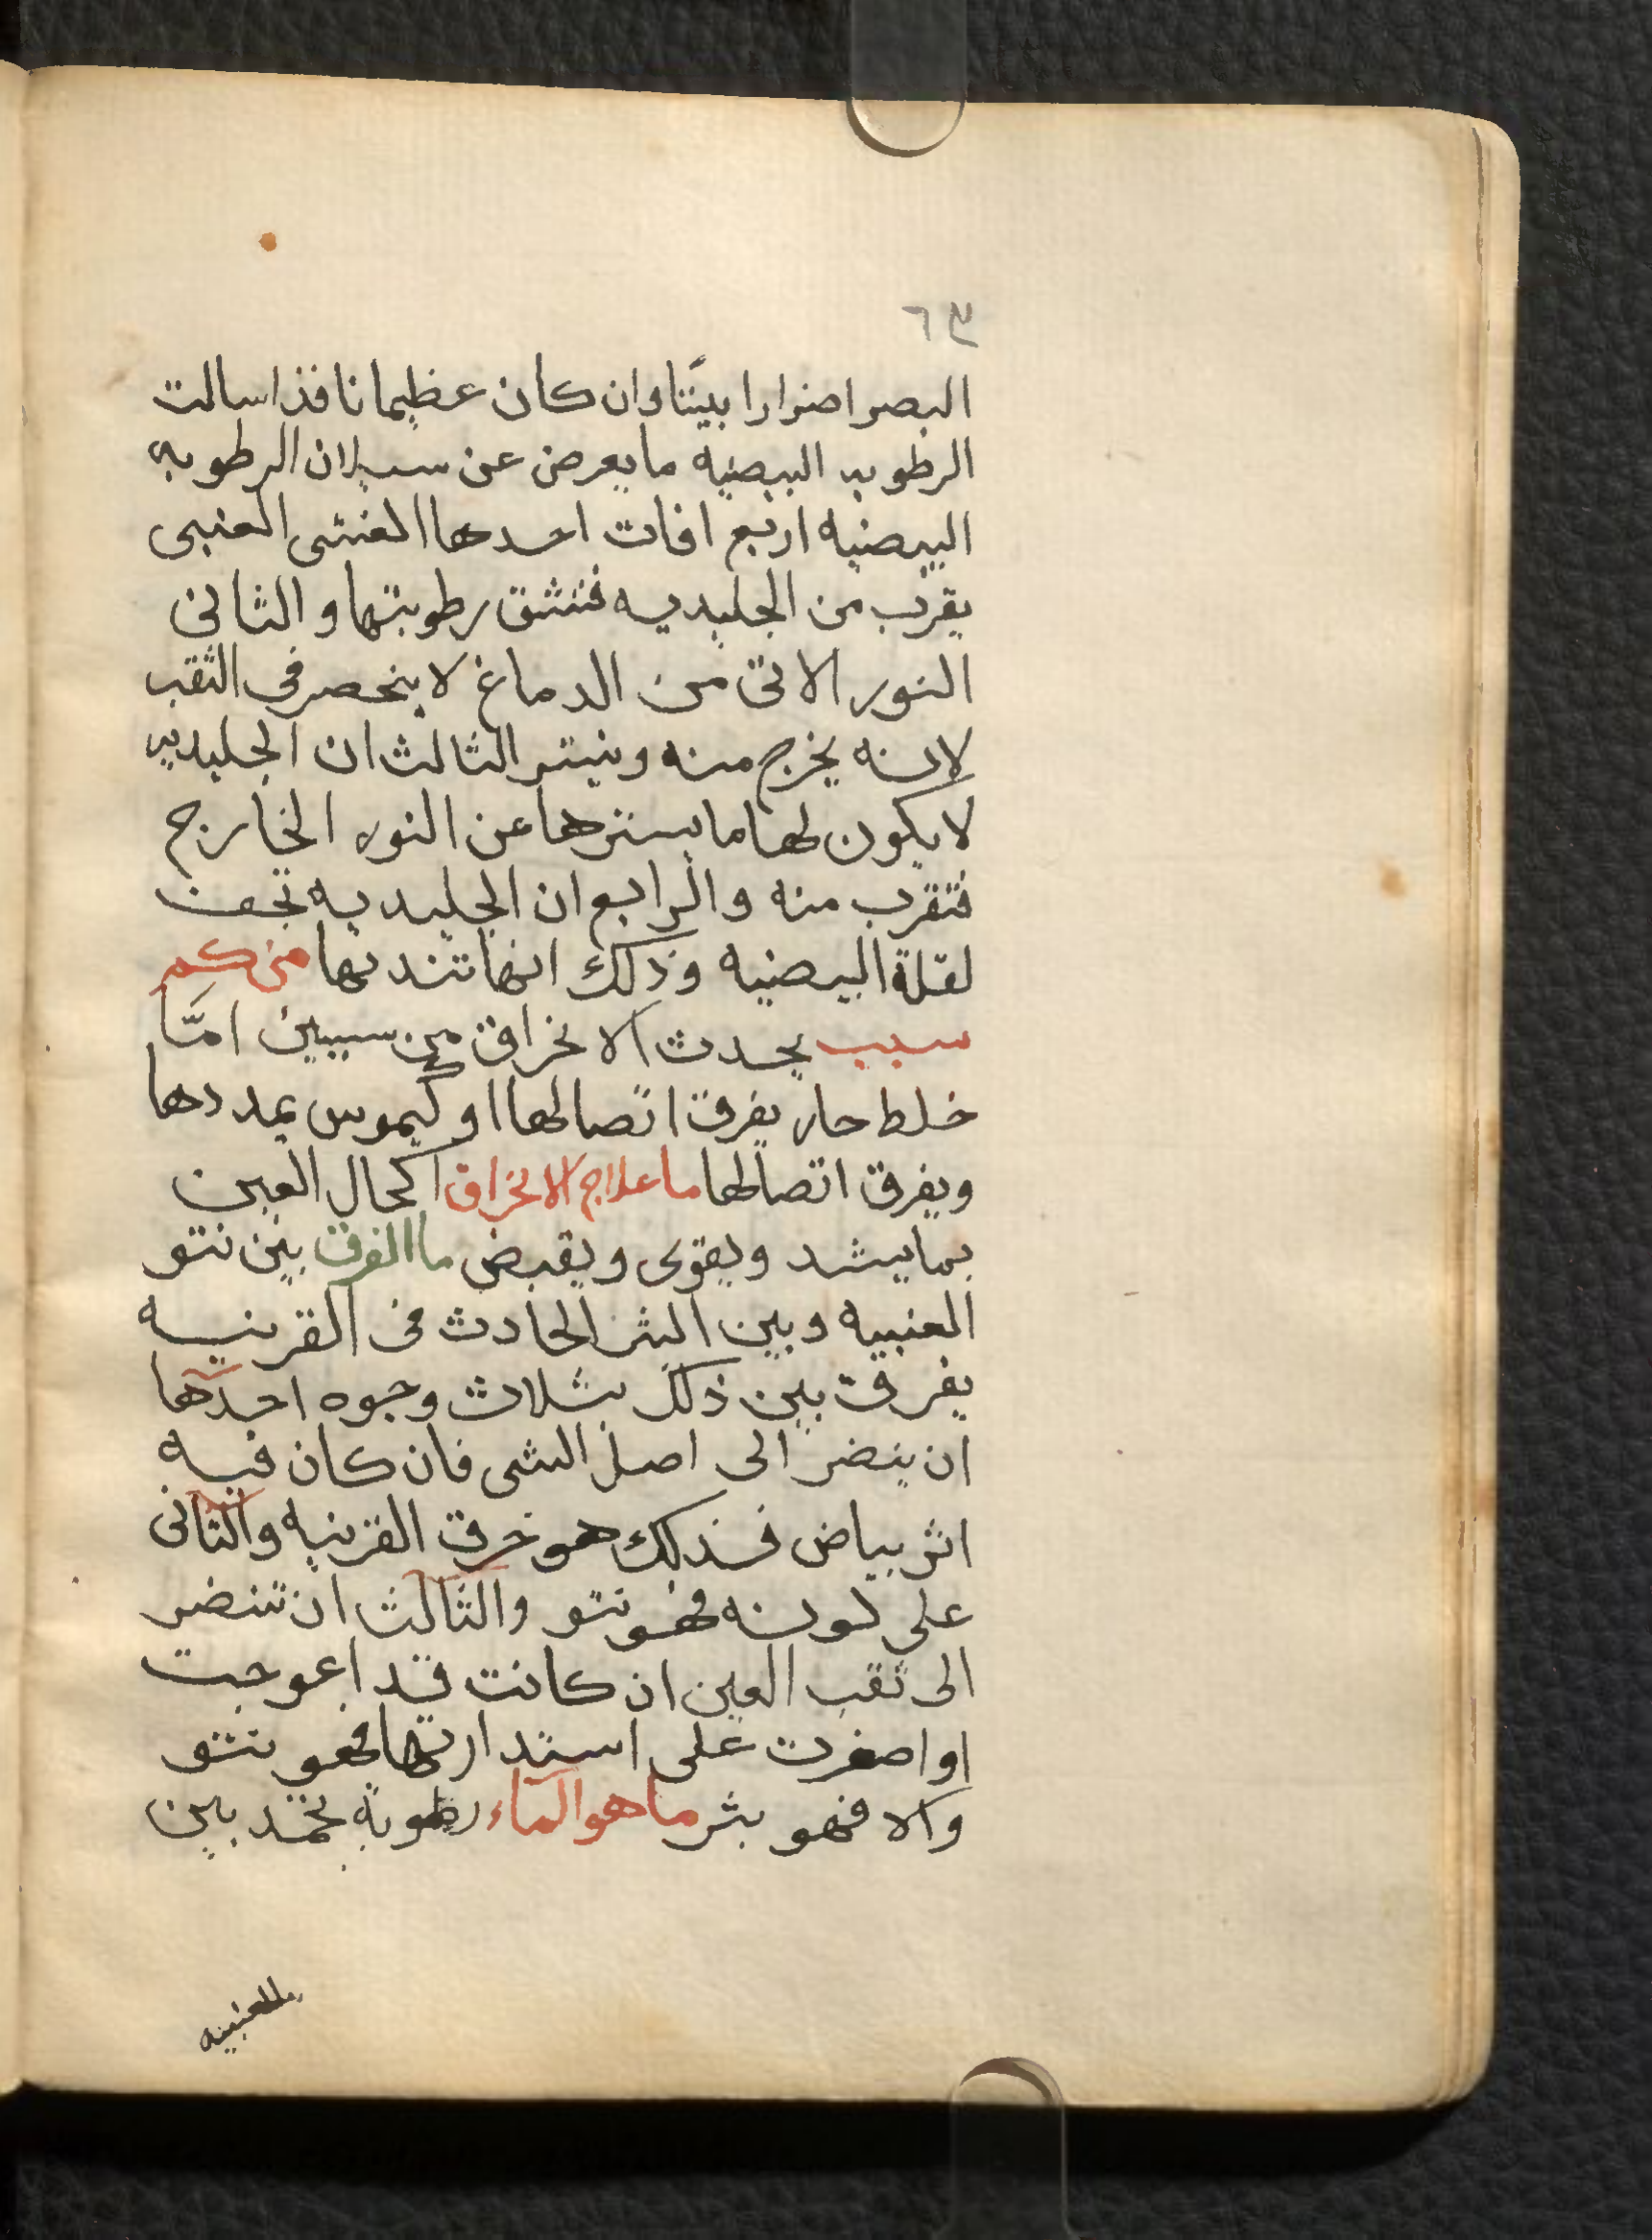 ٦٣
البصر اضرارا بيّنا وان كان عظيما نافذا سالت
الرطوبه البيضيه ما يعرض عن سيلان الرطوبه
البيضيه اربع افات احدها الغشى العنبى
يقرب من الجليديه فتنشق رطوبتها والثانى
النور الاتى من الدماغ لا ينحصر فى الثقب
لانه يخرج منه وينتر الثالث ان الجليديه
لا يكون لها ما يسترها عن النور الخارج
فتقرب منه والرابع ان الجليديه تجف
لقلة البيضيه وذلك انها تنديها من كم
سبب يحدث الانخراق من سببين امّا
خلط حار يفرق اتصالها او كيموس يمددها
ويفرق اتصالها ما علاج الانخراق اكحال العين
بما يشد ويقوى ويقبض ما الفرق بين نتو
العنبيه وبين البثر الحادث فى القرنيه
يفرق بين ذلك بثلاث وجوه احدها
ان ينضر الى اصل الشى فان كان فيه
اثر بياض فذلك هو خرق القرنيه والثانى
على لونه فهو نتو والثالث ان تنضر
الى ثقب العين ان كانت قد اعوجت
او اصغرت على استدارتها فهو نتو
والا فهو بثر ما هو الماء رطوبة تجمد بين
العنبيه